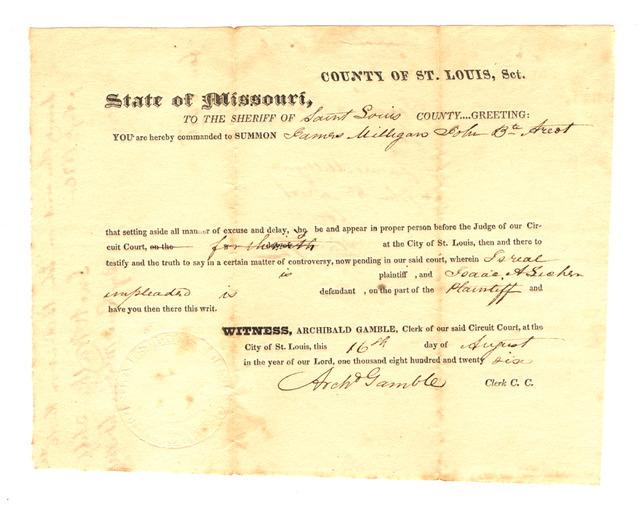 COUNTY OF ST. LOUIS, Sct.
State of Missouri,
TO THE SHERIFF OF Saint Louis COUNTY....GREETING:
YOU are hereby commanded to SUMMON James Milligan John Bte
that setting aside all manner of excuse and delay, be and appear in proper person before the Judge of our Cir-
cuit Court, on the forthwith at the City of St. Louis, then and there to
testify and the truth to say in a certain matter of controversy, now pending in our said court, wherein Isreal
is plaintiff , and Isaac A
impleaded is defendant , on the part of the Plaintiff and
have you then there this writ.
WITNESS, ARCHIBALD GAMBLE, Clerk of our said Circuit Court, at the
City of St. Louis, this 16th day of August
in the year of our Lord, one thousand eight hundred and twenty six
Archd Gamble Clerk C. C.